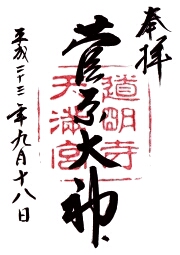 奉拝
菅原大神
道明寺
天満宮
平成二十三年九月十八日